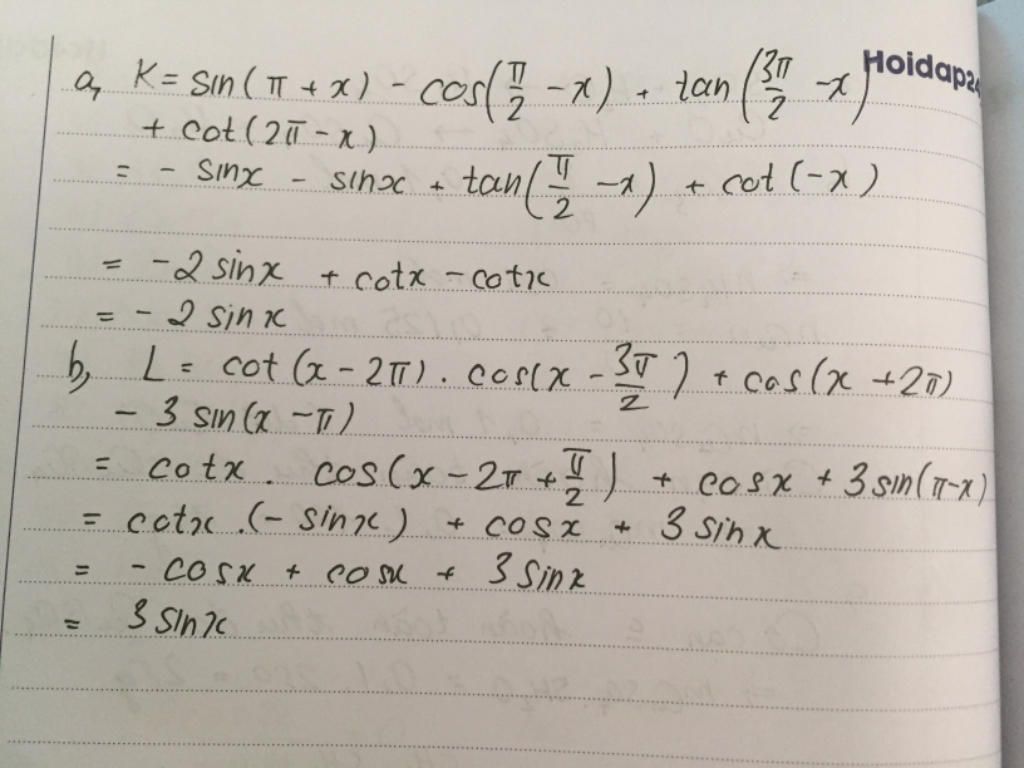 a, K = sin(π + x) - cos(π/2 - x) + tan(3π/2 - x)
Hoidap24
+ cot(2π - x)
= - sinx - sinx + tan(π/2 - x) + cot(-x)
= -2 sinx + cotx - cotx
= - 2 sinx
b, L = cot(x - 2π). cos(x - 3π/2) + cos(x + 2π)
- 3 sin(x - π)
= cotx. cos(x - 2π + π/2) + cosx + 3 sin(π-x)
= cotx .(- sinx) + cosx + 3 sinx
= - cosx + cosx + 3 sinx
= 3 sinx